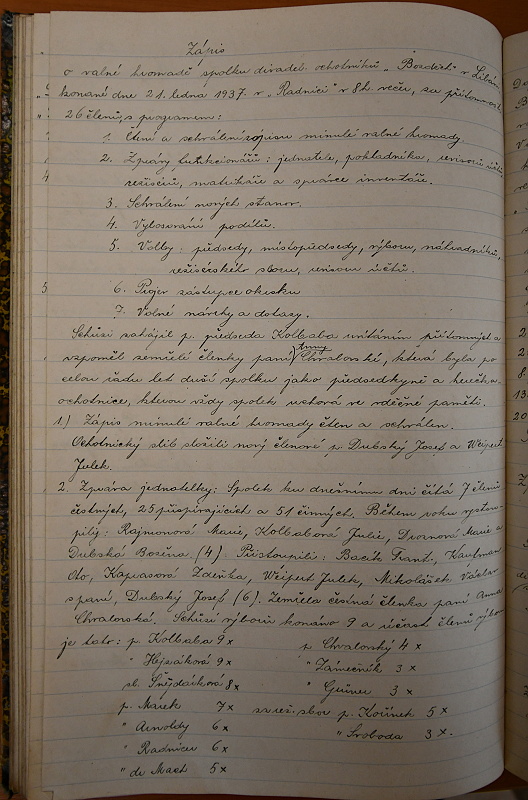 Zápis
o valné hromadě spolku divadel. ochotníků „Bozděch" v Libáni
konané dne 21. ledna 1937. v „Radnici" v 8 h. večer, za přítomnosti
26 členů, s programem:
1. Čtení a schválení zápisu minulé valné hromady.
2. Zprávy funkcionářů: jednatele, pokladníka, revisorů účtů,
režisérů, matrikáře a správce inventáře.
3. Schválení nových stanov.
4. Vylosování podílů.
5. Volby: předsedy, místopředsedy, výboru, náhradníků,
režisérského sboru, revisorů účtů.
6. Projev zástupce okrsku
7. Volné návrhy a dotazy.
Schůzi zahájil p. předseda Kolbaba uvítáním přítomných a
vzpoměl zemřelé členky paní Anny Chvalovské, která byla po
celou řadu let duší spolku jako předsedkyně a herečka
ochotnice, kterou vždy spolek uchová ve vděčné paměti.
1.) Zápis minulé valné hromady čten a schválen.
Ochotnický slib složili nový členové p. Dubský Josef a Weipert
Julek.
2. Zpráva jednatelky: Spolek ku dnešnímu dni čítá 7 členů
čestných, 25 přispívajících a 51 činných. Během roku vystou-
pily: Rajmonová Marie, Kolbabová Julie, Dvorová Marie a
Dubská Božena (4). Přistoupili: Bacík Frant., Kaufman
Oto, Kaprasová Zdeňka, Weipert Julek, Mikolášek Václav
s paní, Dubský Josef (6). Zemřela čestná členka paní Anna
Chvalovská. Schůzí výboru konáno 9 a účast členů výboru
je tato: p. Kolbaba 9 x p. Chvalovský 4 x
" Hejzáková 9 x " Zámečník 3 x
sl. Šnejdárková 8 x " Grüner 3 x
p. Marek 7 x za rež. sbor p. Kořínek 5 x
" Arnoldy 6 x " Svoboda 3 x.
" Radnicer 6 x
" de Mach 5 x